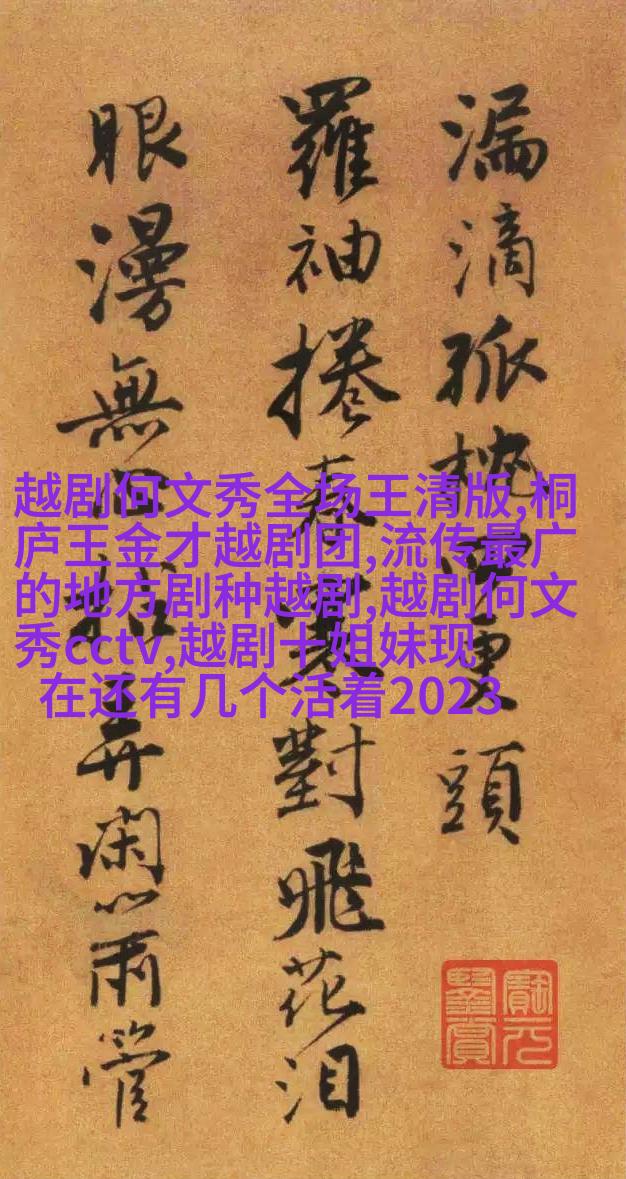 越剧何文秀全场王清版,桐
庐王金才越剧团,流传最广
的地方剧种越剧,越剧何文
秀cctv,越剧十姐妹现
在还有几个活着2023
漏滴孤枕更頭
羅袖捲春寒對飛花泪
眼漫無弄閑心兩管
寶元
鑒賞